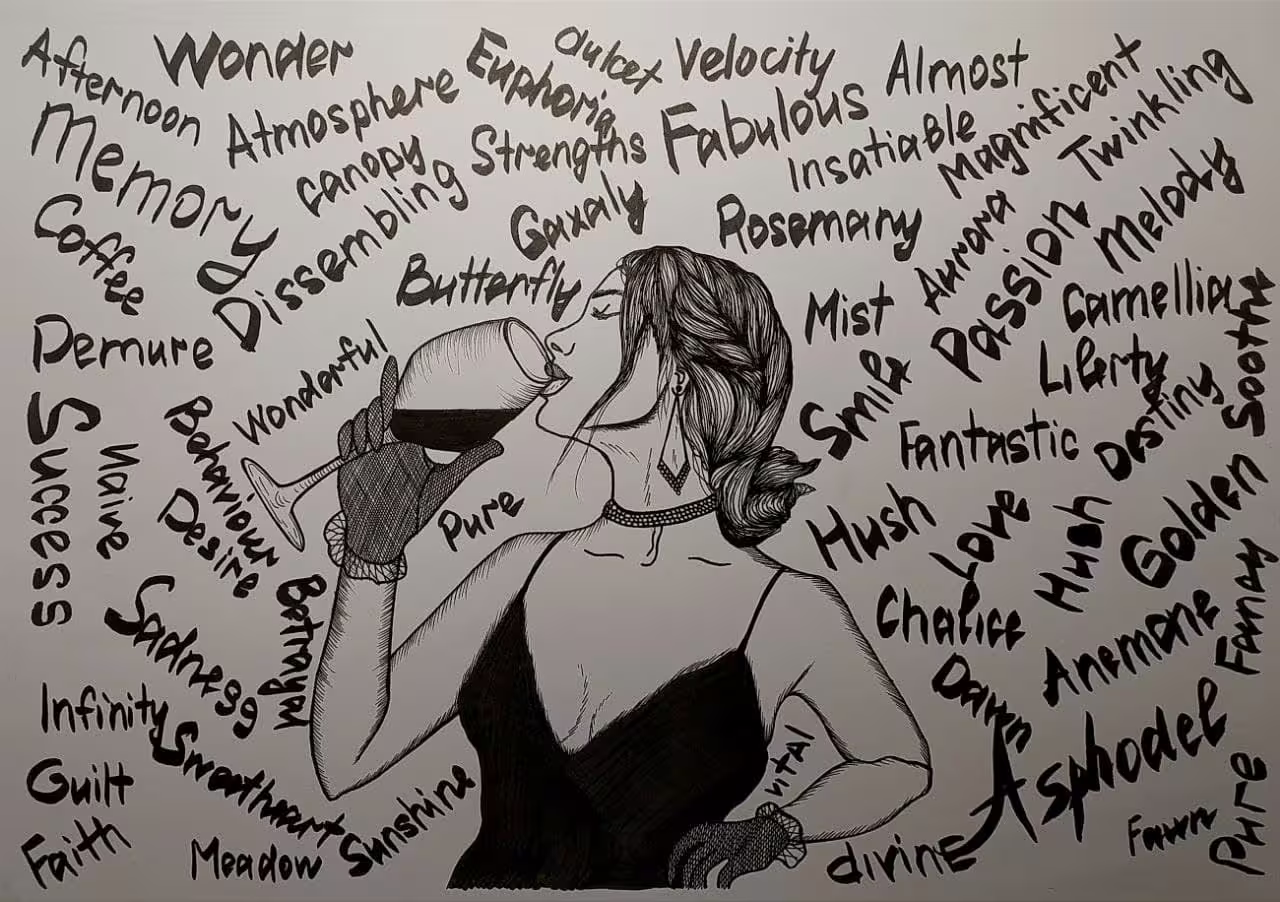 Afternoon
Wonder
Euphoria
dulcet
Velocity
Almost
Magnificent
Twinkling
Memory
Atmosphere
canopy
Strengths
Fabulous
Insatiable
Coffee
Dissembling
Gaxaly
Rosemary
Aurora
Passion
Melody
Butterfly
Mist
Camellia
Soothe
Demure
Wonderful
Smile
Liberty
Success
Naive
Behaviour
Desire
Fantastic
Destiny
Pure
Hush
Love
Hush
Golden
Sadness
Betrayal
Chalice
Anemone
Infinity
Sweetheart
Dawn
Asphodel
Guilt
Sunshine
vital
Faith
Meadow
divine
Fawn
Pure